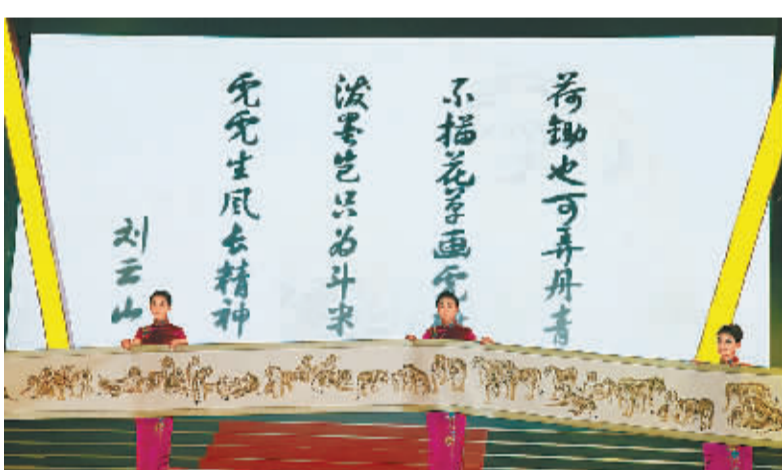 荷锄也可弄丹青
不描花草画虎
泼墨岂只为斗米
虎虎生风长精神
刘云山